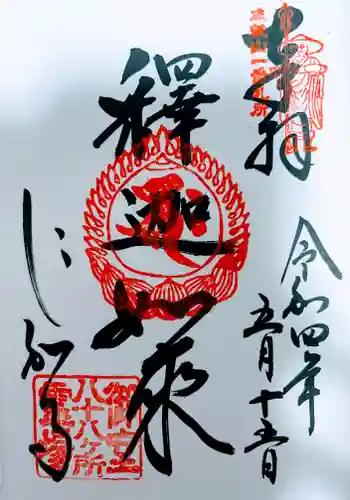 奉拝
令和四年
五月十五日
釋迦如来
じかう
御室
八十八ヶ所
霊場